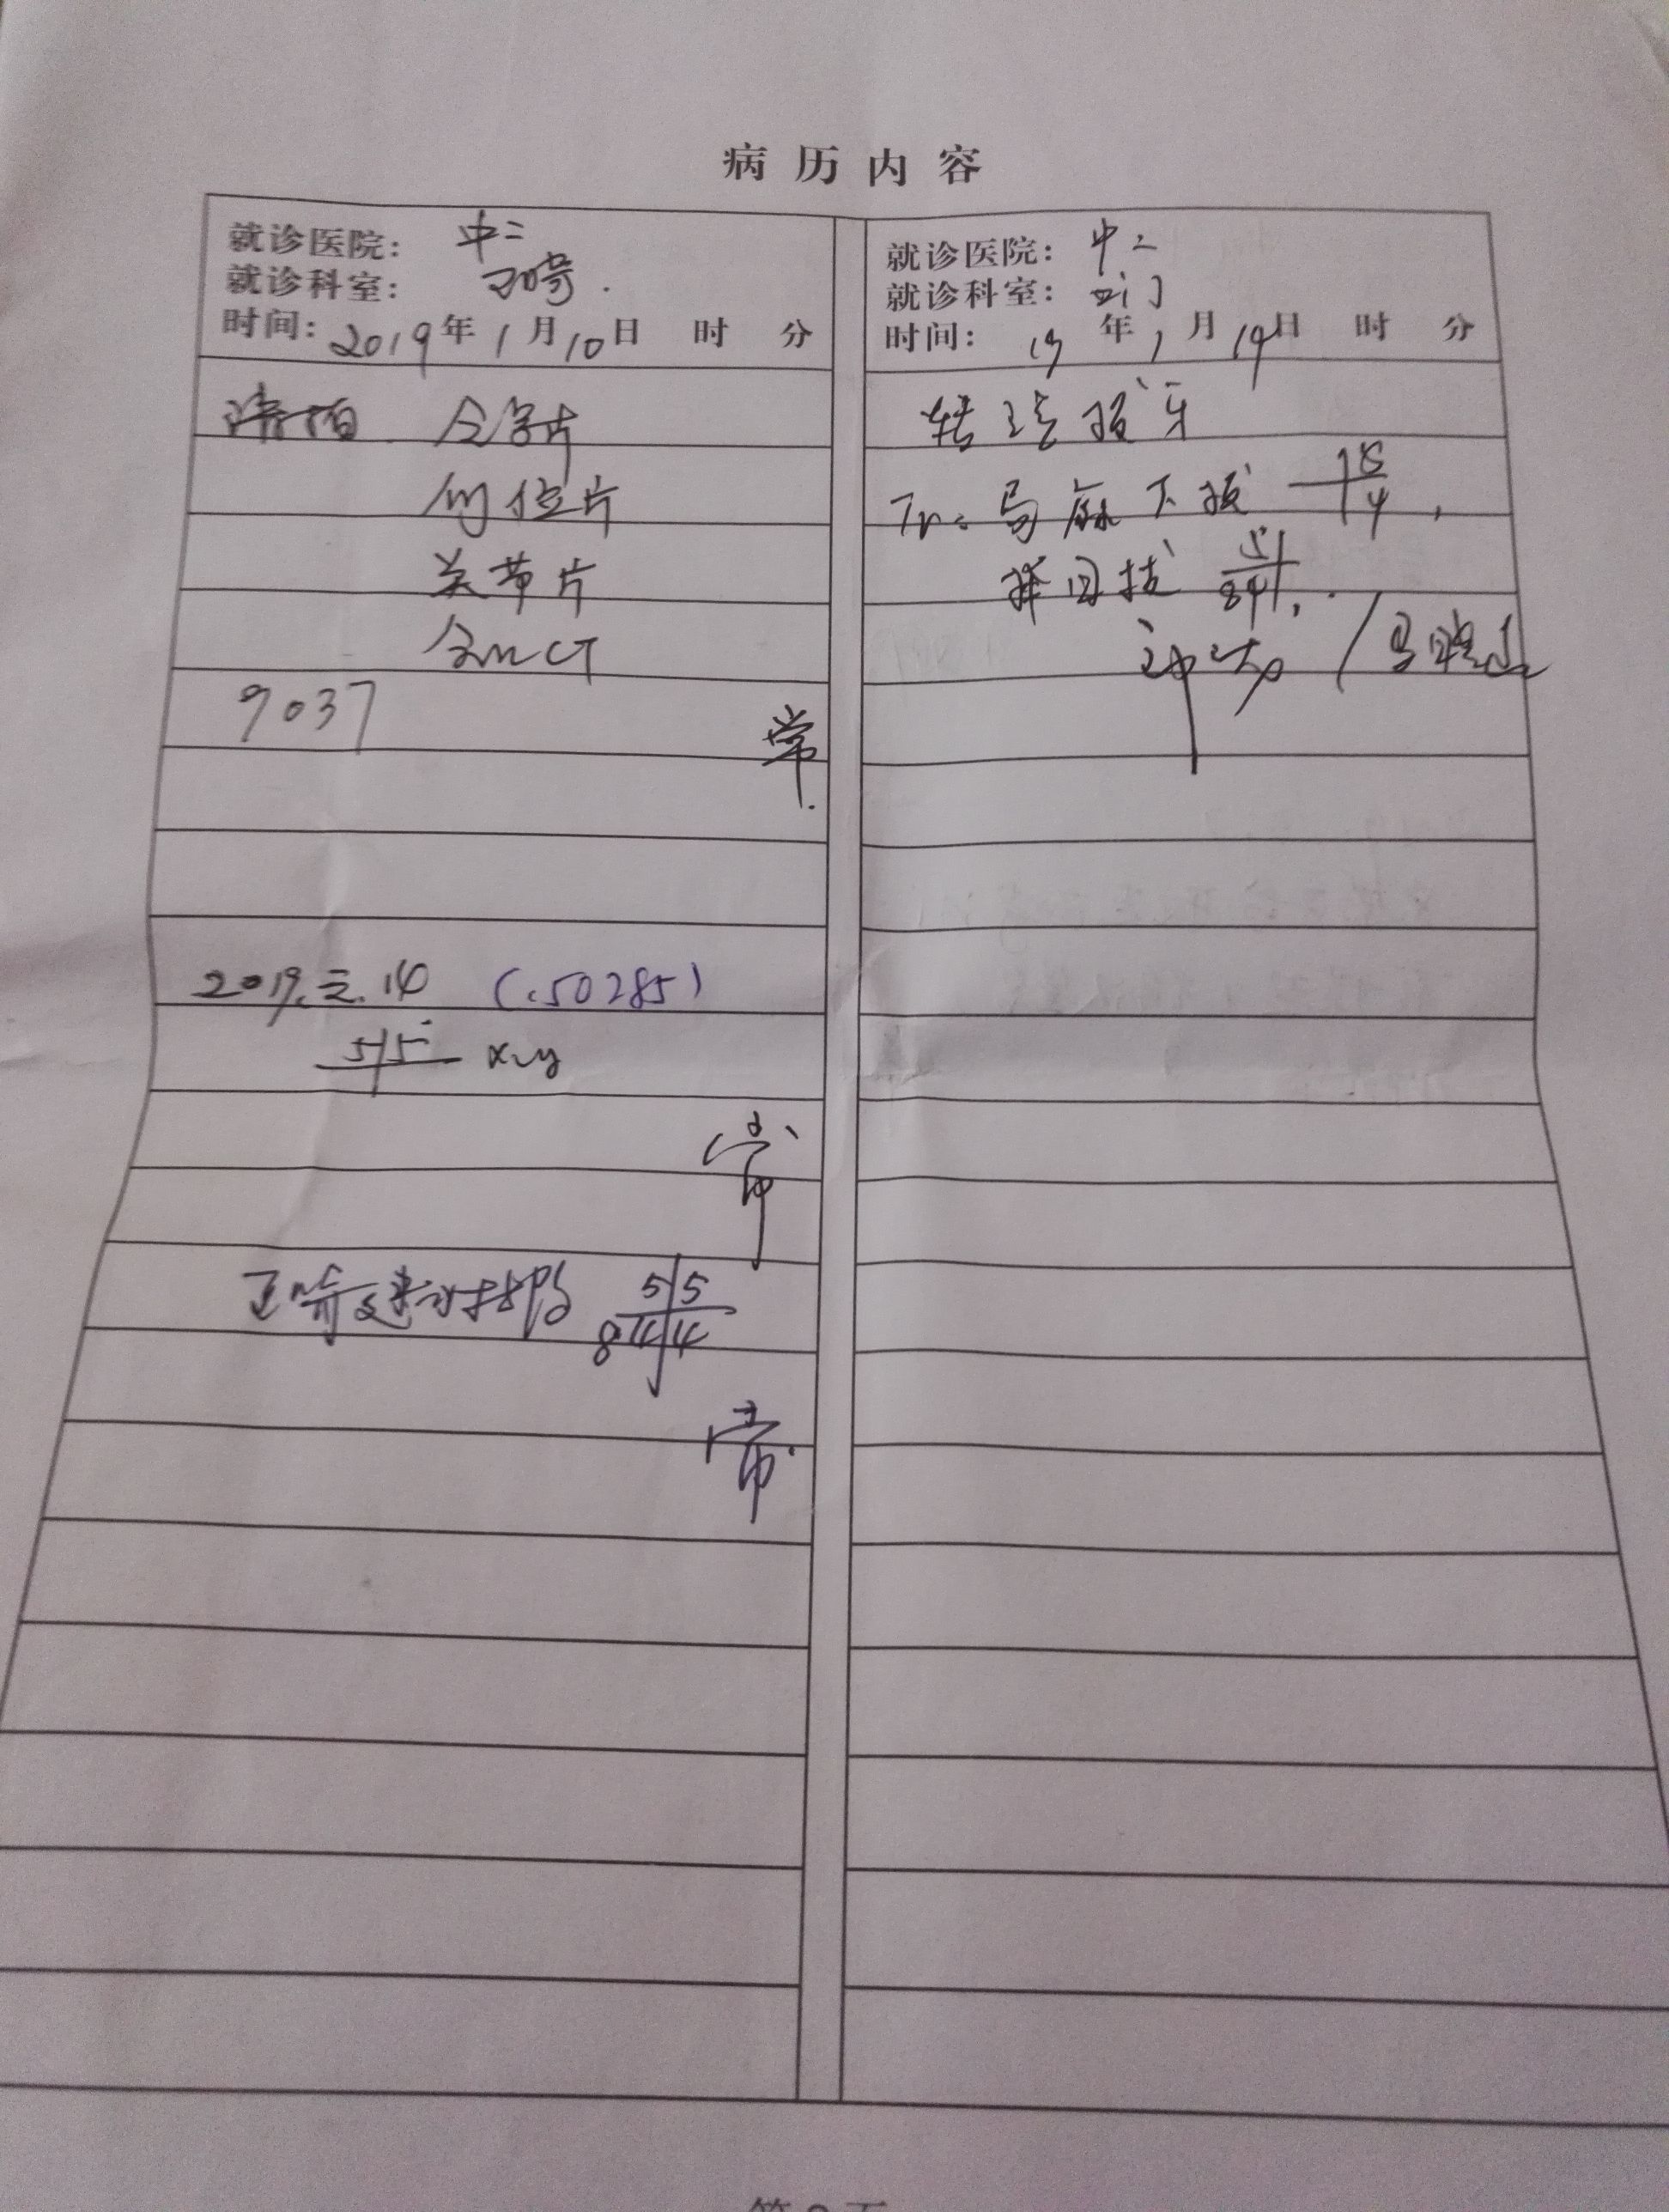 病历内容
就诊医院: 中二
就诊科室: 正畸.
时间: 2019年1月10日 时 分
请拍 全字片
侧位片
关节片
全口CT
9037
常.
2019.元.14 (50285)
5|5 x-ray
常
正畸建议拔除 5|5
84|4
常.
就诊医院: 中二
就诊科室:
时间: 19年1月19日 时 分
转诊拔牙
Tr: 局麻下拔 |5
4,
择日拔 5|
84|,.